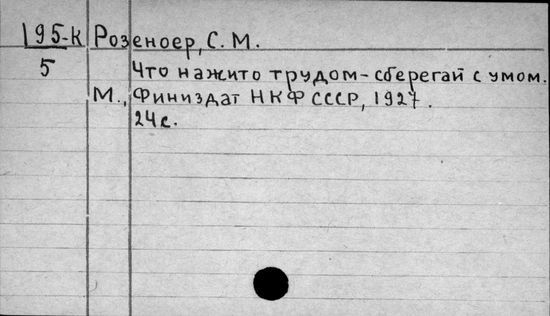 195-К Розеноер, С. М.
5 Что нажито трудом - сберегай с умом.
М., Финиздат НКФ СССР, 1927.
24с.